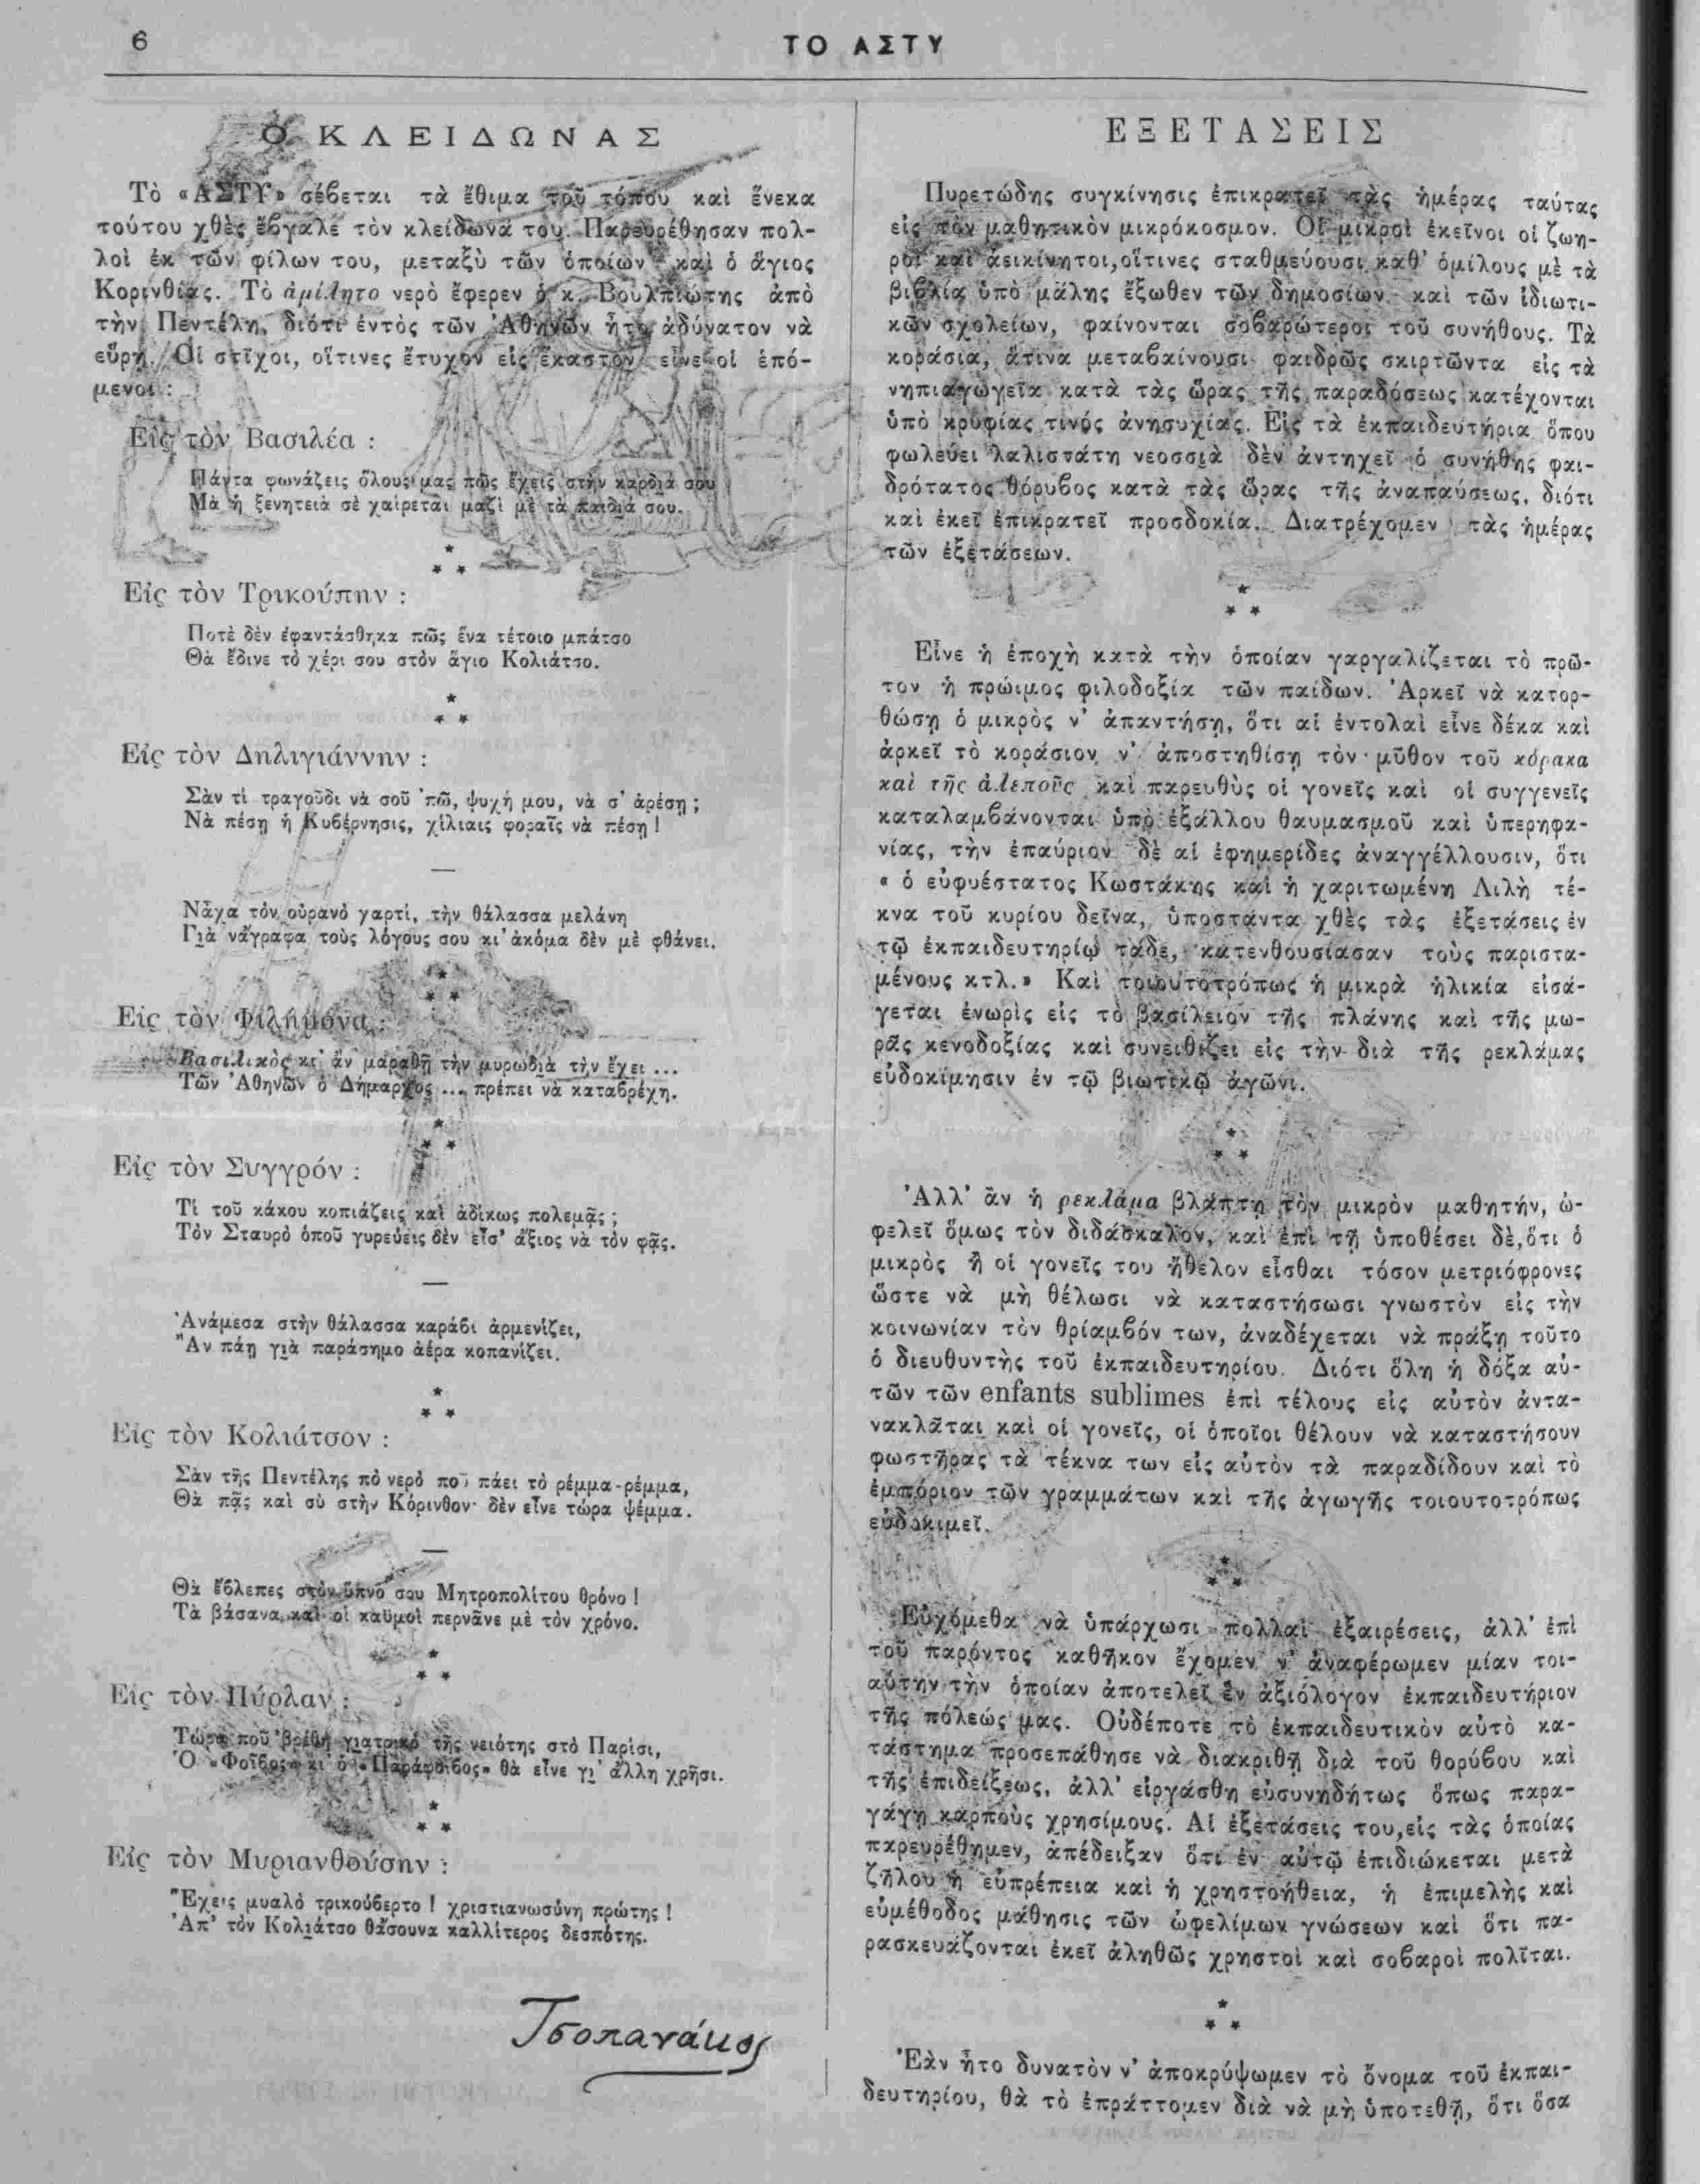 6
ΤΟ ΑΣΤΥ
Ο ΚΛΕΙΔΩΝΑΣ
Τὸ «ΑΣΤΥ» σέβεται τὰ ἔθιμα τοῦ τόπου καὶ ἕνεκα
τούτου χθὲς ἔβγαλε τὸν κλείδωνά του. Παρευρέθησαν πολ-
λοὶ ἐκ τῶν φίλων του, μεταξὺ τῶν ὁποίων καὶ ὁ ἅγιος
Κορινθίας. Τὸ ἀμίλητο νερὸ ἔφερεν ὁ κ. Βουλπιώτης ἀπὸ
τὴν Πεντέλη, διότι ἐντὸς τῶν Ἀθηνῶν ἦτο ἀδύνατον νὰ
εὕρῃ. Οἱ στῖχοι, οἵτινες ἔτυχον εἰς ἕκαστον εἶνε οἱ ἑπό-
μενοι :
Εἰς τὸν Βασιλέα :
Πάντα φωνάζεις ὅλους μας πῶς ἔχεις στὴν καρδιά σου
Μὰ ἡ ξενητειὰ σὲ χαίρεται μαζὶ μὲ τὰ παιδιά σου.
* * *
Εἰς τὸν Τρικούπην :
Ποτὲ δὲν ἐφαντάσθηκα πῶς ἕνα τέτοιο μπάτσο
Θὰ ἔδινε τὸ χέρι σου στὸν ἅγιο Κολιάτσο.
* * *
Εἰς τὸν Δηλιγιάννην :
Σὰν τί τραγοῦδι νὰ σοῦ 'πῶ, ψυχή μου, νὰ σ' ἀρέσῃ ;
Νὰ πέσῃ ἡ Κυβέρνησις, χίλιαις φοραῖς νὰ πέσῃ !
—
Νἆχα τὸν οὐρανὸ χαρτί, τὴν θάλασσα μελάνη
Γιὰ νἄγραφα τοὺς λόγους σου κι' ἀκόμα δὲν μὲ φθάνει.
* * *
Εἰς τὸν Φιλήμονα :
Βασιλικὸς κι' ἂν μαραθῇ τὴν μυρωδιὰ τὴν ἔχει ...
Τῶν Ἀθηνῶν ὁ Δήμαρχος ... πρέπει νὰ καταβρέχῃ.
* * *
Εἰς τὸν Συγγρόν :
Τί τοῦ κάκου κοπιάζεις καὶ ἀδίκως πολεμᾷς ;
Τὸν Σταυρὸ ὁποῦ γυρεύεις δὲν εἶσ' ἄξιος νὰ τὸν φᾷς.
—
Ἀνάμεσα στὴν θάλασσα καράβι ἀρμενίζει,
Ἂν πάῃ γιὰ παράσημο ἀέρα κοπανίζει.
* * *
Εἰς τὸν Κολιάτσον :
Σὰν τῆς Πεντέλης τὸ νερὸ ποῦ πάει τὸ ρέμμα-ρέμμα,
Θὰ πᾷς καὶ σὺ στὴν Κόρινθον· δὲν εἶνε τώρα ψέμμα.
—
Θὰ ἔβλεπες στὸν ὕπνο σου Μητροπολίτου θρόνο !
Τὰ βάσανα καὶ οἱ καϋμοὶ περνᾶνε μὲ τὸν χρόνο.
* * *
Εἰς τὸν Πύρλαν :
Τώρα ποῦ 'βρέθη γιατρικὸ τῆς νειότης στὸ Παρίσι,
Ὁ «Φοῖβος» κι' ὁ «Παράφοιβος» θὰ εἶνε γι' ἄλλη χρῆσι.
* * *
Εἰς τὸν Μυριανθούσην :
Ἔχεις μυαλὸ τρικούβερτο ! χριστιανωσύνη πρώτης !
Ἀπ' τὸν Κολιάτσο θἄσουνα καλλίτερος δεσπότης.
Τσοπανάκος
ΕΞΕΤΑΣΕΙΣ
Πυρετώδης συγκίνησις ἐπικρατεῖ τὰς ἡμέρας ταύτας
εἰς τὸν μαθητικὸν μικρόκοσμον. Οἱ μικροὶ ἐκεῖνοι οἱ ζωη-
ροὶ καὶ ἀεικίνητοι, οἵτινες σταθμεύουσι καθ' ὁμίλους μὲ τὰ
βιβλία ὑπὸ μάλης ἔξωθεν τῶν δημοσίων καὶ τῶν ἰδιωτι-
κῶν σχολείων, φαίνονται σοβαρώτεροι τοῦ συνήθους. Τὰ
κοράσια, ἅτινα μεταβαίνουσι φαιδρῶς σκιρτῶντα εἰς τὰ
νηπιαγωγεῖα κατὰ τὰς ὥρας τῆς παραδόσεως κατέχονται
ὑπὸ κρυφίας τινὸς ἀνησυχίας. Εἰς τὰ ἐκπαιδευτήρια ὅπου
φωλεύει λαλιστάτη νεοσσιὰ δὲν ἀντηχεῖ ὁ συνήθης φαι-
δρότατος θόρυβος κατὰ τὰς ὥρας τῆς ἀναπαύσεως, διότι
καὶ ἐκεῖ ἐπικρατεῖ προσδοκία. Διατρέχομεν τὰς ἡμέρας
τῶν ἐξετάσεων.
* * *
Εἶνε ἡ ἐποχὴ κατὰ τὴν ὁποίαν γαργαλίζεται τὸ πρῶ-
τον ἡ πρώιμος φιλοδοξία τῶν παίδων. Ἀρκεῖ νὰ κατορ-
θώσῃ ὁ μικρὸς ν' ἀπαντήσῃ, ὅτι αἱ ἐντολαὶ εἶνε δέκα καὶ
ἀρκεῖ τὸ κοράσιον ν' ἀποστηθίσῃ τὸν μῦθον τοῦ κόρακα
καὶ τῆς ἀλεποῦς καὶ παρευθὺς οἱ γονεῖς καὶ οἱ συγγενεῖς
καταλαμβάνονται ὑπὸ ἐξάλλου θαυμασμοῦ καὶ ὑπερηφα-
νίας, τὴν ἐπαύριον δὲ αἱ ἐφημερίδες ἀναγγέλλουσιν, ὅτι
« ὁ εὐφυέστατος Κωστάκης καὶ ἡ χαριτωμένη Λιλὴ τέ-
κνα τοῦ κυρίου δεῖνα, ὑποστάντα χθὲς τὰς ἐξετάσεις ἐν
τῷ ἐκπαιδευτηρίῳ τάδε, κατενθουσίασαν τοὺς παριστα-
μένους κτλ.» Καὶ τοιουτοτρόπως ἡ μικρὰ ἡλικία εἰσά-
γεται ἐνωρὶς εἰς τὸ βασίλειον τῆς πλάνης καὶ τῆς μω-
ρᾶς κενοδοξίας καὶ συνειθίζει εἰς τὴν διὰ τῆς ρεκλάμας
εὐδοκίμησιν ἐν τῷ βιωτικῷ ἀγῶνι.
* * *
Ἀλλ' ἂν ἡ ρεκλάμα βλάπτῃ τὸν μικρὸν μαθητήν, ὠ-
φελεῖ ὅμως τὸν διδάσκαλον, καὶ ἐπὶ τῇ ὑποθέσει δὲ, ὅτι ὁ
μικρὸς ἢ οἱ γονεῖς του ἤθελον εἶσθαι τόσον μετριόφρονες
ὥστε νὰ μὴ θέλωσι νὰ καταστήσωσι γνωστὸν εἰς τὴν
κοινωνίαν τὸν θρίαμβόν των, ἀναδέχεται νὰ πράξῃ τοῦτο
ὁ διευθυντὴς τοῦ ἐκπαιδευτηρίου. Διότι ὅλη ἡ δόξα αὐ-
τῶν τῶν enfants sublimes ἐπὶ τέλους εἰς αὐτὸν ἀντα-
νακλᾶται καὶ οἱ γονεῖς, οἱ ὁποῖοι θέλουν νὰ καταστήσουν
φωστῆρας τὰ τέκνα των εἰς αὐτὸν τὰ παραδίδουν καὶ τὸ
ἐμπόριον τῶν γραμμάτων καὶ τῆς ἀγωγῆς τοιουτοτρόπως
εὐδοκιμεῖ.
* * *
Εὐχόμεθα νὰ ὑπάρχωσι πολλαὶ ἐξαιρέσεις, ἀλλ' ἐπὶ
τοῦ παρόντος καθῆκον ἔχομεν ν' ἀναφέρωμεν μίαν τοι-
αύτην τὴν ὁποίαν ἀποτελεῖ ἓν ἀξιόλογον ἐκπαιδευτήριον
τῆς πόλεώς μας. Οὐδέποτε τὸ ἐκπαιδευτικὸν αὐτὸ κα-
τάστημα προσεπάθησε νὰ διακριθῇ διὰ τοῦ θορύβου καὶ
τῆς ἐπιδείξεως, ἀλλ' εἰργάσθη εὐσυνηδήτως ὅπως παρα-
γάγῃ καρποὺς χρησίμους. Αἱ ἐξετάσεις του, εἰς τὰς ὁποίας
παρευρέθημεν, ἀπέδειξαν ὅτι ἐν αὐτῷ ἐπιδιώκεται μετὰ
ζήλου ἡ εὐπρέπεια καὶ ἡ χρηστοήθεια, ἡ ἐπιμελὴς καὶ
εὐμέθοδος μάθησις τῶν ὠφελίμων γνώσεων καὶ ὅτι πα-
ρασκευάζονται ἐκεῖ ἀληθῶς χρηστοὶ καὶ σοβαροὶ πολῖται.
* * *
Ἐὰν ἦτο δυνατὸν ν' ἀποκρύψωμεν τὸ ὄνομα τοῦ ἐκπαι-
δευτηρίου, θὰ τὸ ἐπράττομεν διὰ νὰ μὴ ὑποτεθῇ, ὅτι ὅσα